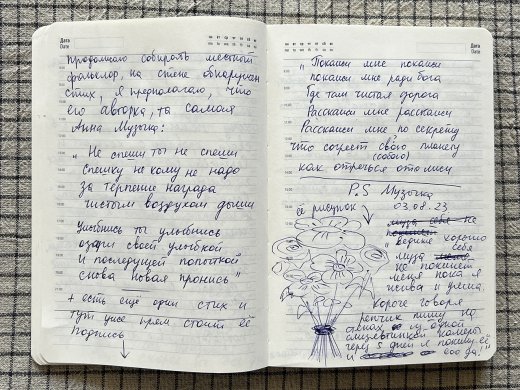 Дата
Date
Продолжаю собирать местный
фольклор, на стене обнаружен
стих, я предполагаю, что
его авторка, та самая
Анна Музычка:
„ Не спеши ты не спеши
спешку не кому не надо
за терпение награда
чистым воздухом дыши
Улыбнись ты улыбнись
озари своей улыбкой
и последующей попыткой
снова новая
"
+ есть ещё один стих и
тут уже прям стоит её
подпись
Дата
Date
„ Покажи мне покажи
покажи мне ради бога
Где там чистая дорога
Расскажи мне расскажи
Расскажи мне по секрету
что согреет свою планету
(собою)
как отречься от
P.S Музычка
03.08.23
её рисунок
муза себя не
„ ведите хорошо
себя
муза меня
не покинет
меня пока я
жива и
короче говоря
пишу на
стенах одной
камеры
через 5 дней я покину её
и